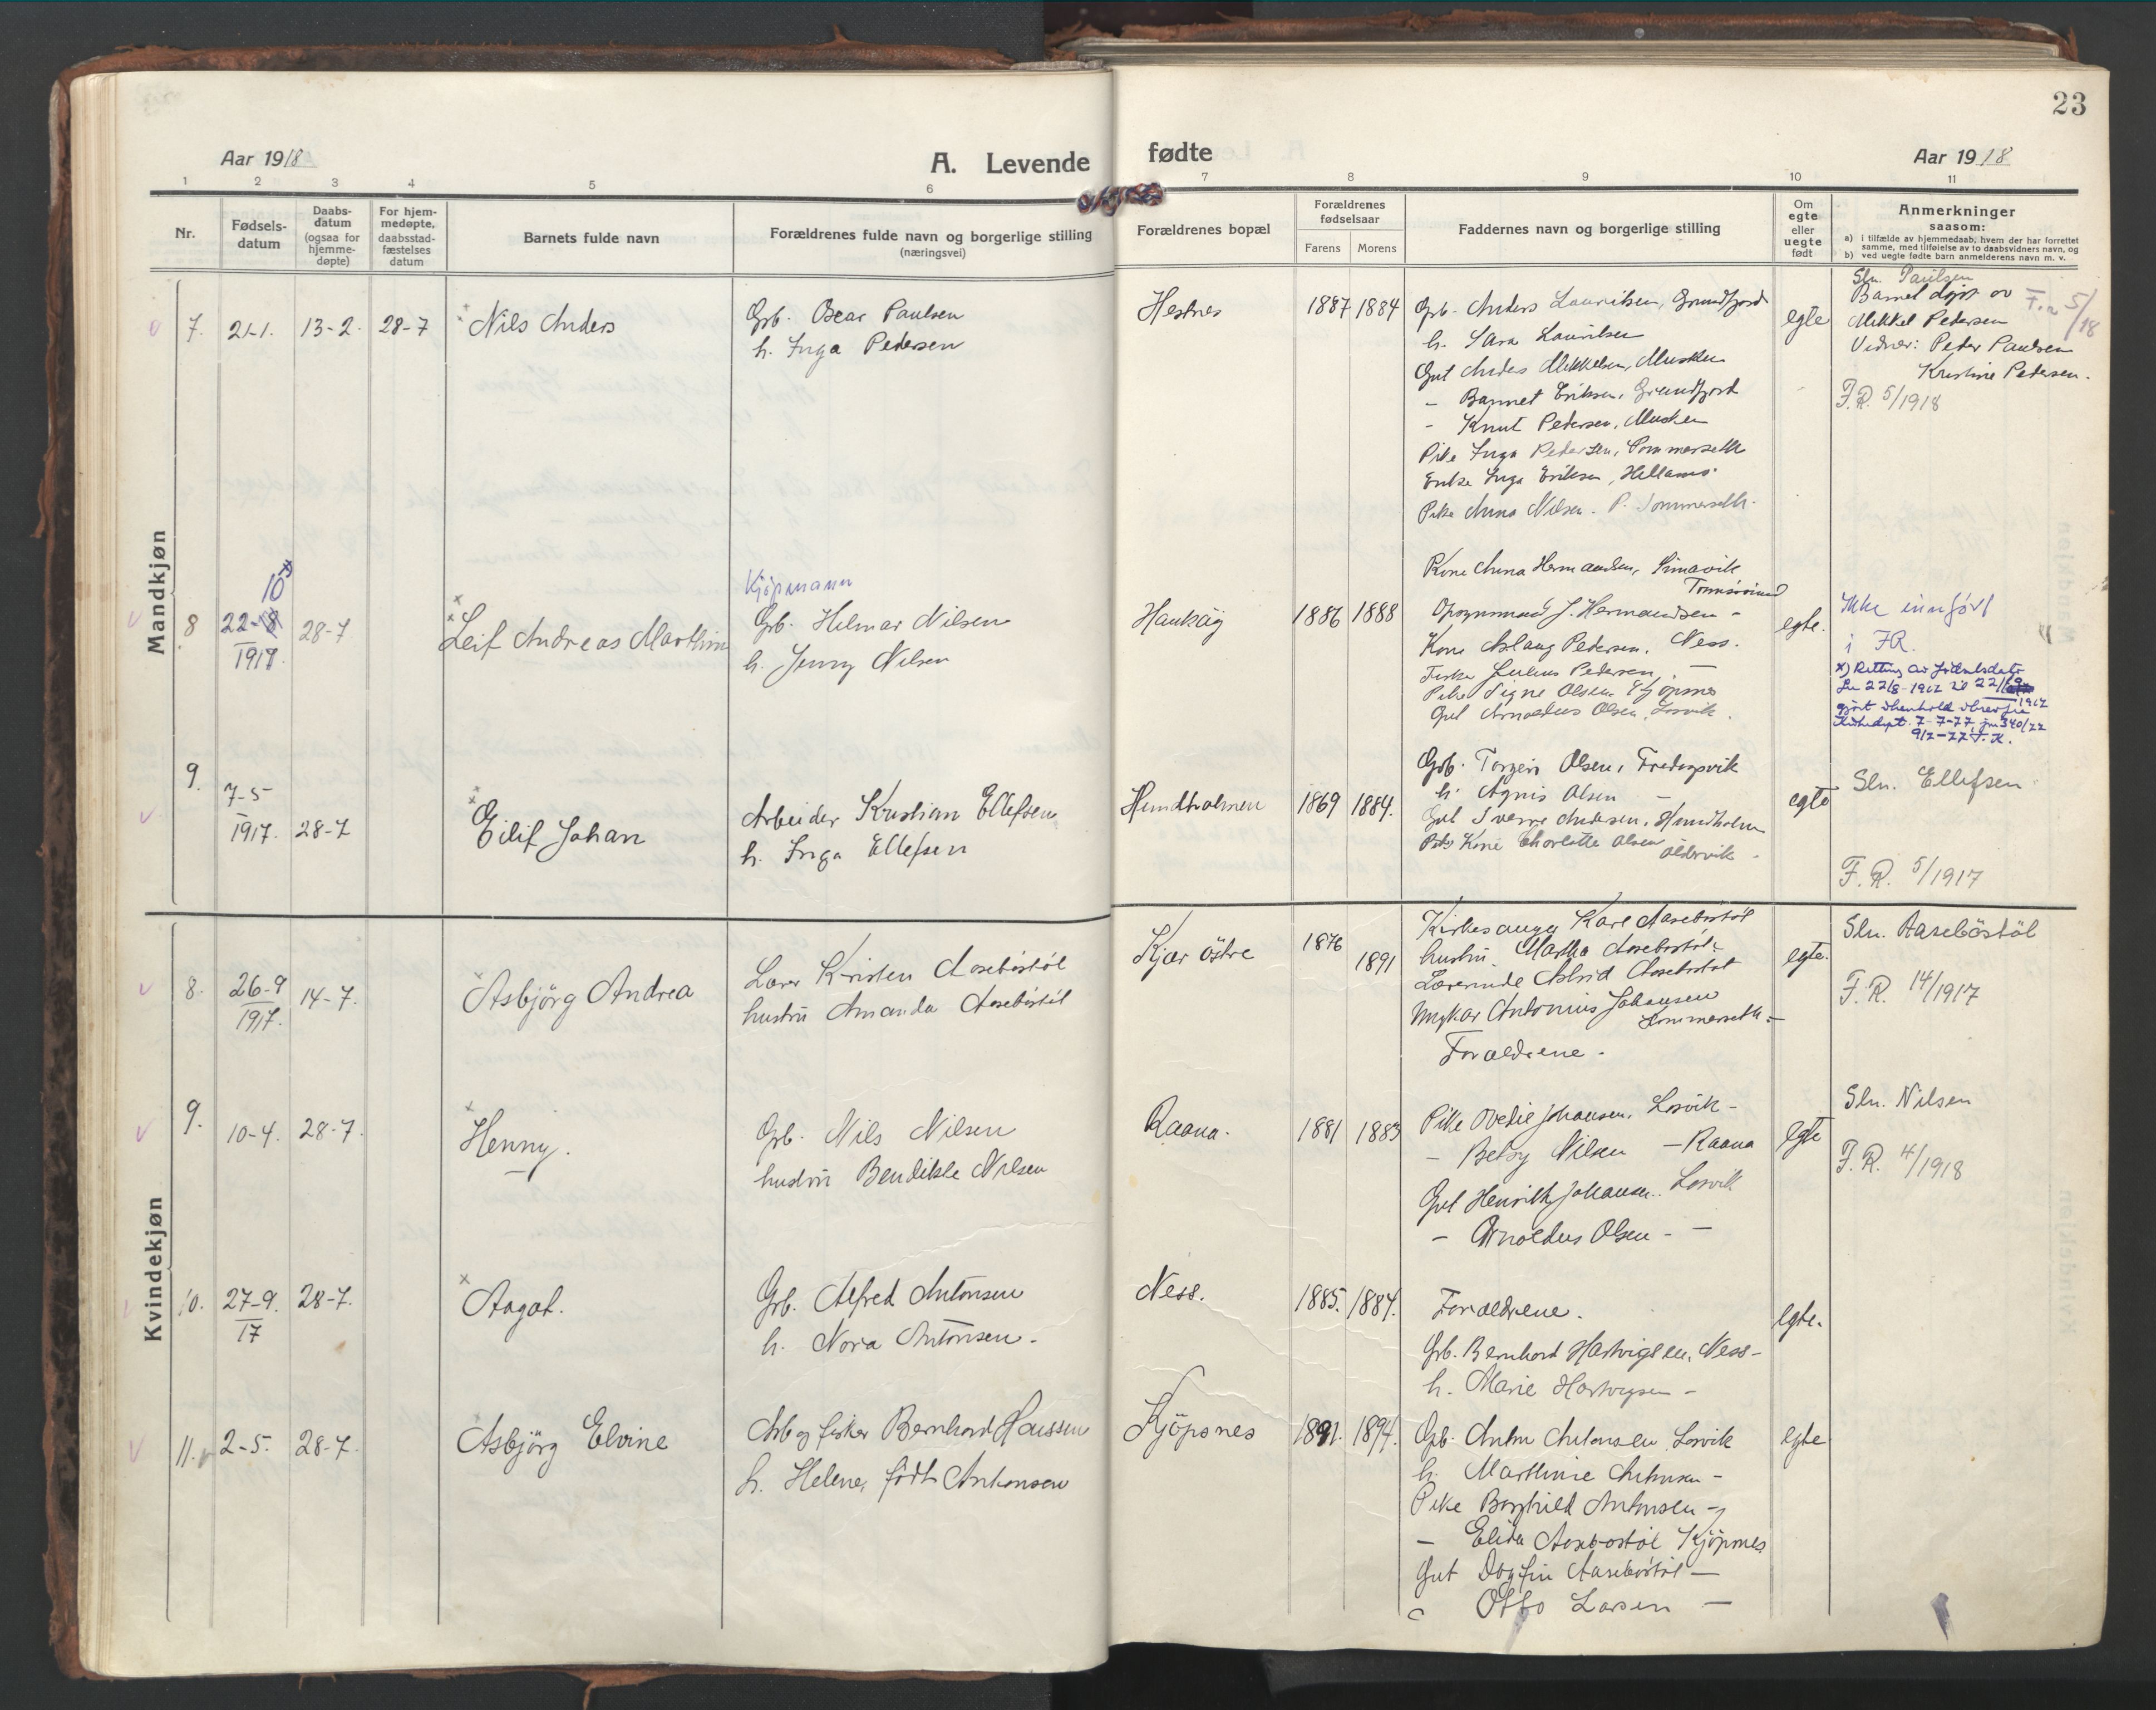 23
Aar 1918
A. Levende
fødte
Aar 1918
1 2 3 4 5 6 7 8 9 10 11
Nr.
Fødsels-
datum
Daabs-
datum
(ogsaa for
hjemme-
døpte)
For hjem-
medøpte,
daabsstad-
fæstelses
datum
Barnets fulde navn
Forældrenes fulde navn og borgerlige stilling
(næringsvei)
Forældrenes bopæl
Forældrenes
fødselsaar
Farens Morens
Faddernes navn og borgerlige stilling
Om
egte
eller
uegte
født
Anmerkninger
saasom:
a) i tilfælde av hjemmedaab, hvem der har forrettet
samme, med tilføielse av to daabsvidners navn, og
b) ved uegte fødte barn anmelderens navn m. v.
Mandkjøn
7. 21-1. 13-2. 28-7 Nils Anders
Grb. Oscar Paulsen
h. Inga Pedersen
Hestnes 1887 1884
Grb. Anders Lauritsen, Grundfjord
h. Sara Lauritsen
Gut Anders Mikkelsen, Musken
- Bannet Eriksen, Grundfjord
- Knut Pedersen, Musken
Pike Inga Pedersen, Sommerseth
Enke Inga Eriksen, Hellanes
Pike Anna Nilsen. P. Sommerseth.
egte
Sln. Paulsen
Barnet døpt av
Mikkel Pedersen
Vidner: Peder Paulsen
Kristine Pedersen.
F.R. 5/18
F.R. 5/1918
8 22-8 10 x)
1917. 28-7 Leif Andreas Marthin
Kjøpmann
Grb. Hilmar Nilsen
h. Jenny Nilsen
Haukøy 1886 1888
Kone Anna Hermandsen,
Opsynsmand J. Hermandsen -
Kone Aslaug Pedersen, Ness.
Julius Pedersen, -
Pike Signe Olsen, Kjøpsnes
Gut Arnoldus Olsen, Losvik.
egte.
Ikke innført
i FR.
x) Retting av fødselsdato
fra 22/8-1917 til 22/10 1917
gjort i henhold til brev fra
Kirkedept. 7-7-77 jnr 340/77
9/7-77 T.K.
9. 7-5
1917. 28-7 Eilif Johan
Arbeider Kristian Ellefsen
h. Inga Ellefsen
Hundholmen 1869 1884.
Grb. Torgeir Olsen, Fredagsvik
h. Agnis Olsen -
Gut Sverre Andersen, Hundholm
Kone Charlotte Olsen Oldervik -
egte
Sln. Ellefsen
F.R. 5/1917
Kvindekjøn
8. 26-9
1917. 14-7. Asbjörg Andrea
Lærer Kristen Aasebøstöl
hustru Amanda Aasebøstöl
Kjær östre 1876 1891
Kirkesanger Karl Aasebøstöl
hustru Martha Aasebøstöl
Lærerinde Astrid Aasebøstöl
Ungkar Antonius Johansen
Sommerseth -
Forældrene.
egte.
Sln. Aasebøstöl
F.R. 14/1917
9. 10-4. 28-7. Henny.
Grb. Nils Nilsen
hustru Bendikte Nilsen
Raana. 1881 1883
Pike Ovedie Johansen, Losvik -
- Betsy Nilsen - Raana
Gut Henrik Johansen. Losvik
- Arnoldus Olsen - -
egte
Sln. Nilsen
F.R. 4/1918
10. 27-9.
17 28-7. Aagot.
Grb. Alfred Antonsen
h. Nora Antonsen.
Ness. 1885. 1884.
Forældrene.
Grb. Bernhard Hartvigsen, Ness -
h. Marie Hartvigsen -
egte.
11. 2-5. 28-7. Asbjörg Elvine
Arb og fisker Bernhard Hanssen
h. Helene, född Antonsen
Kjöpsnes 1891. 1894.
Grb. Anton Antonsen, Losvik
h. Marthinie Antonsen -
Pike Borghild Antonsen -
- Elida Aasebøstöl Kjöpsnes
Gut Dagfin Aasebøstöl -
" Otto Larsen -
egte